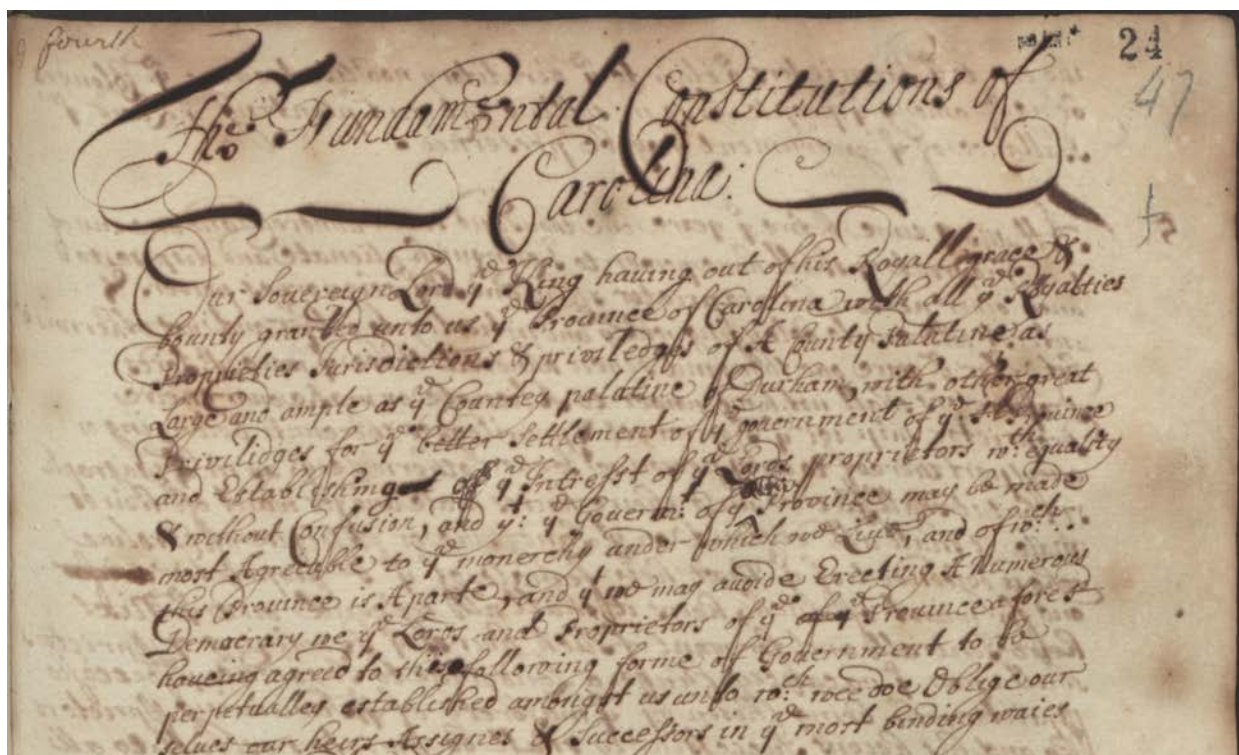 fourth
24
47
The Fundamental Constitutions of
Carolina:
Our Sovereign Lord ye King having out of his Royall grace &
bounty granted unto us ye Province of Carolina with all ye Royalties
Proprieties Jurisdictions & priviledges of A County Palatine as
Large and ample as ye Countey palatine of Durham, with other great
Priviledges for ye better settlement of ye government of ye sd Province
and Establishing of ye Intresst of ye Lords proprietors wth. equality
& without Confusion, and yt: ye Governmt. of ye Province may be made
most Agreeable to ye monerchy under which we Live, and of wch
this Province is A parte, and yt we may avoide Erecting A Numerous
Democracy we ye Lords and Proprietors of ye Province aforesd
haveing agreed to this following forme of Government to be
perpetualley established amongst us unto wch. wee doe Oblige our
selves our heirs Assignes & Successors in ye most binding waies